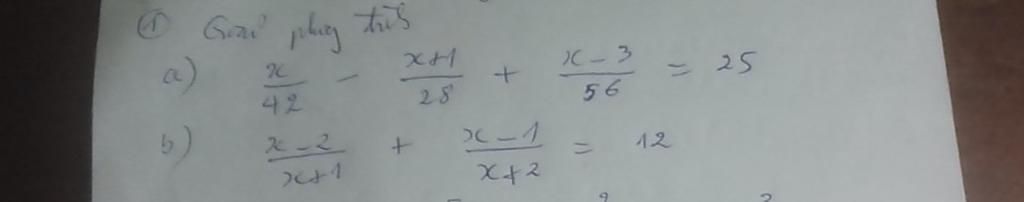 ① Giải phương trình
a) x/42 - x+1/28 + x-3/56 = 25
b) x-2/x+1 + x-1/x+2 = 12